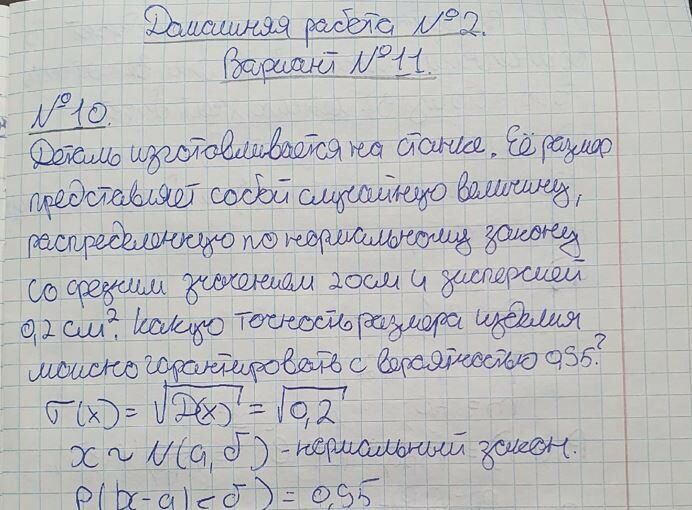 Домашняя работа №2.
Вариант №11.
№10.
Деталь изготавливается на станке. Её размер
представляет собой случайную величину,
распределенную по нормальному закону
со средним значением 20 см и дисперсией
0,2 см². Какую точность размера изделия
можно гарантировать с вероятностью 0,95?
σ(x) = √D(x) = √0,2
x ~ N(a, σ) - нормальный закон.
P(|x-a| < δ) = 0,95